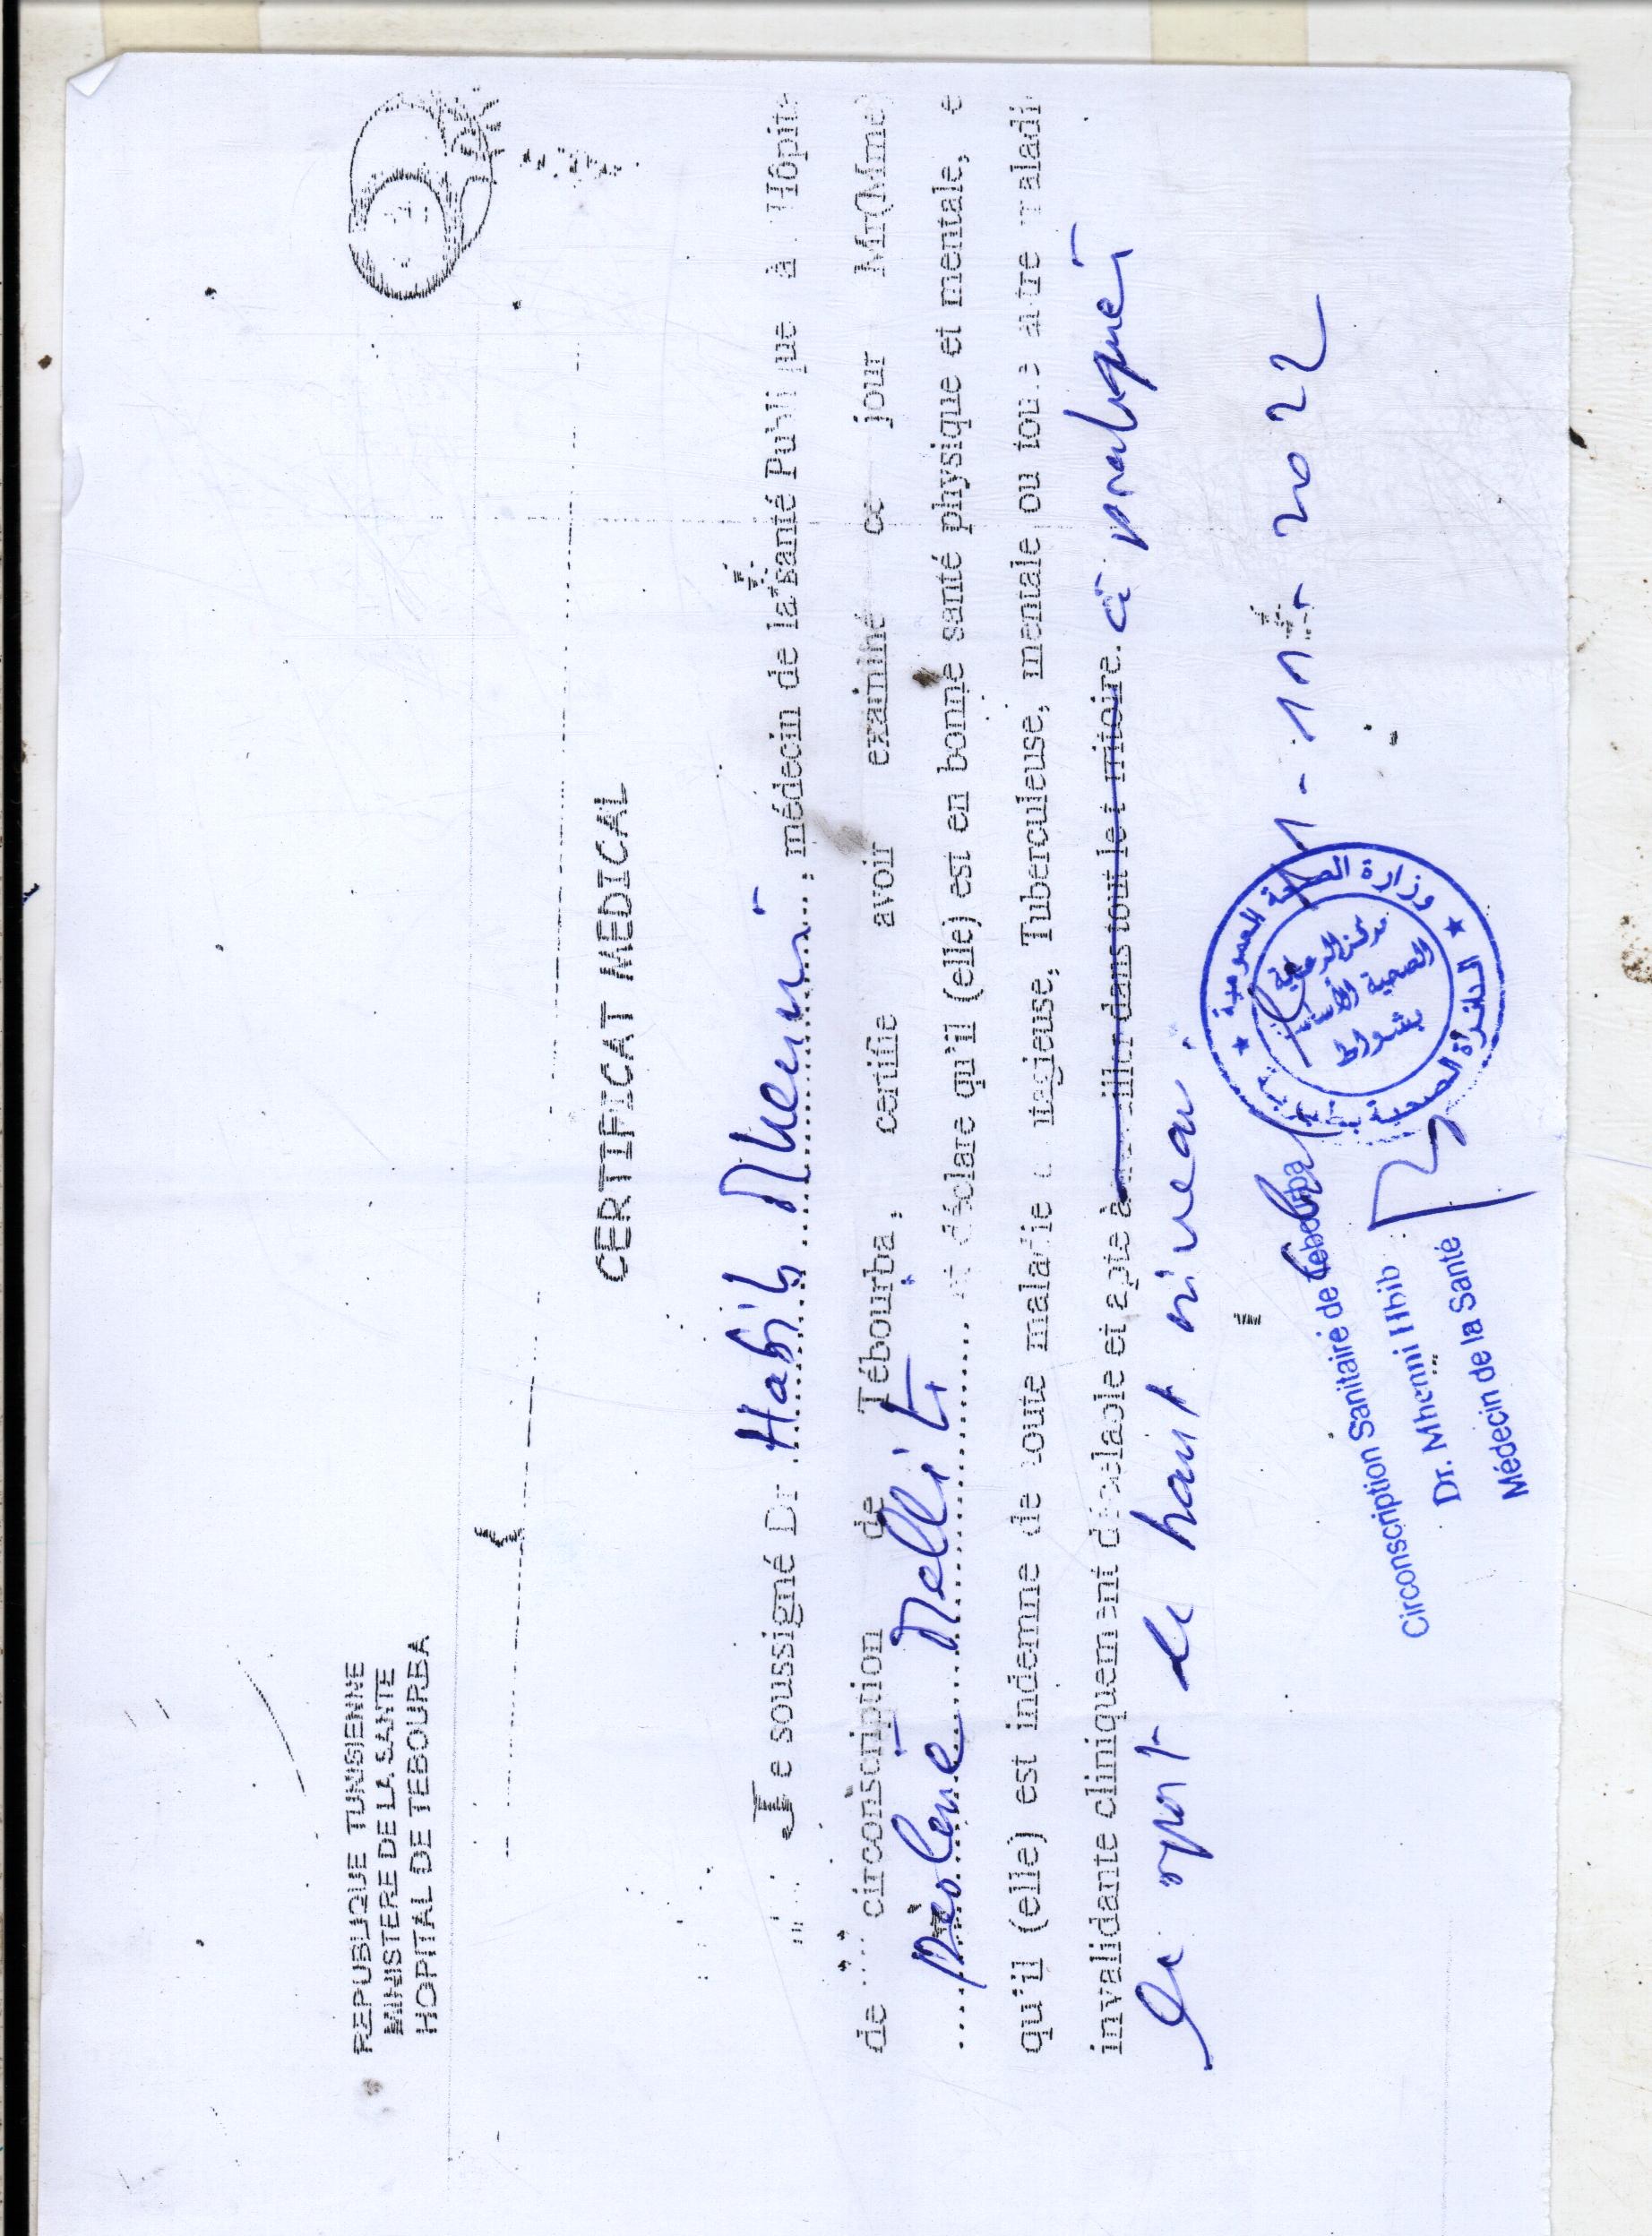 REPUBLIQUE TUNISIENNE
MINISTERE DE LA SANTE
HOPITAL DE TEBOURBA
CERTIFICAT MEDICAL
Je soussigné Dr Habib Mhenni, médecin de la santé Publique à Hôpita
de circonscription de Tébourba, certifie avoir examiné ce jour Mr(Mme)
Melliti et déclare qu'il (elle) est en bonne santé physique et mentale, e
qu'il (elle) est indemne de toute maladie c ntagieuse, Tuberculeuse, mentale ou toute autre maladi
invalidante cliniquement décelable et apte à travailler dans tout le territoire. à pratiquer
du sport de haut niveau.
11-2022
Circonscription Sanitaire de Tebourba
Dr. Mhenni Hbib
Médecin de la Santé
وزارة الصحة العمومية
الدائرة الصحية
مركز الرعاية
الصحية الأساسية
بشواط